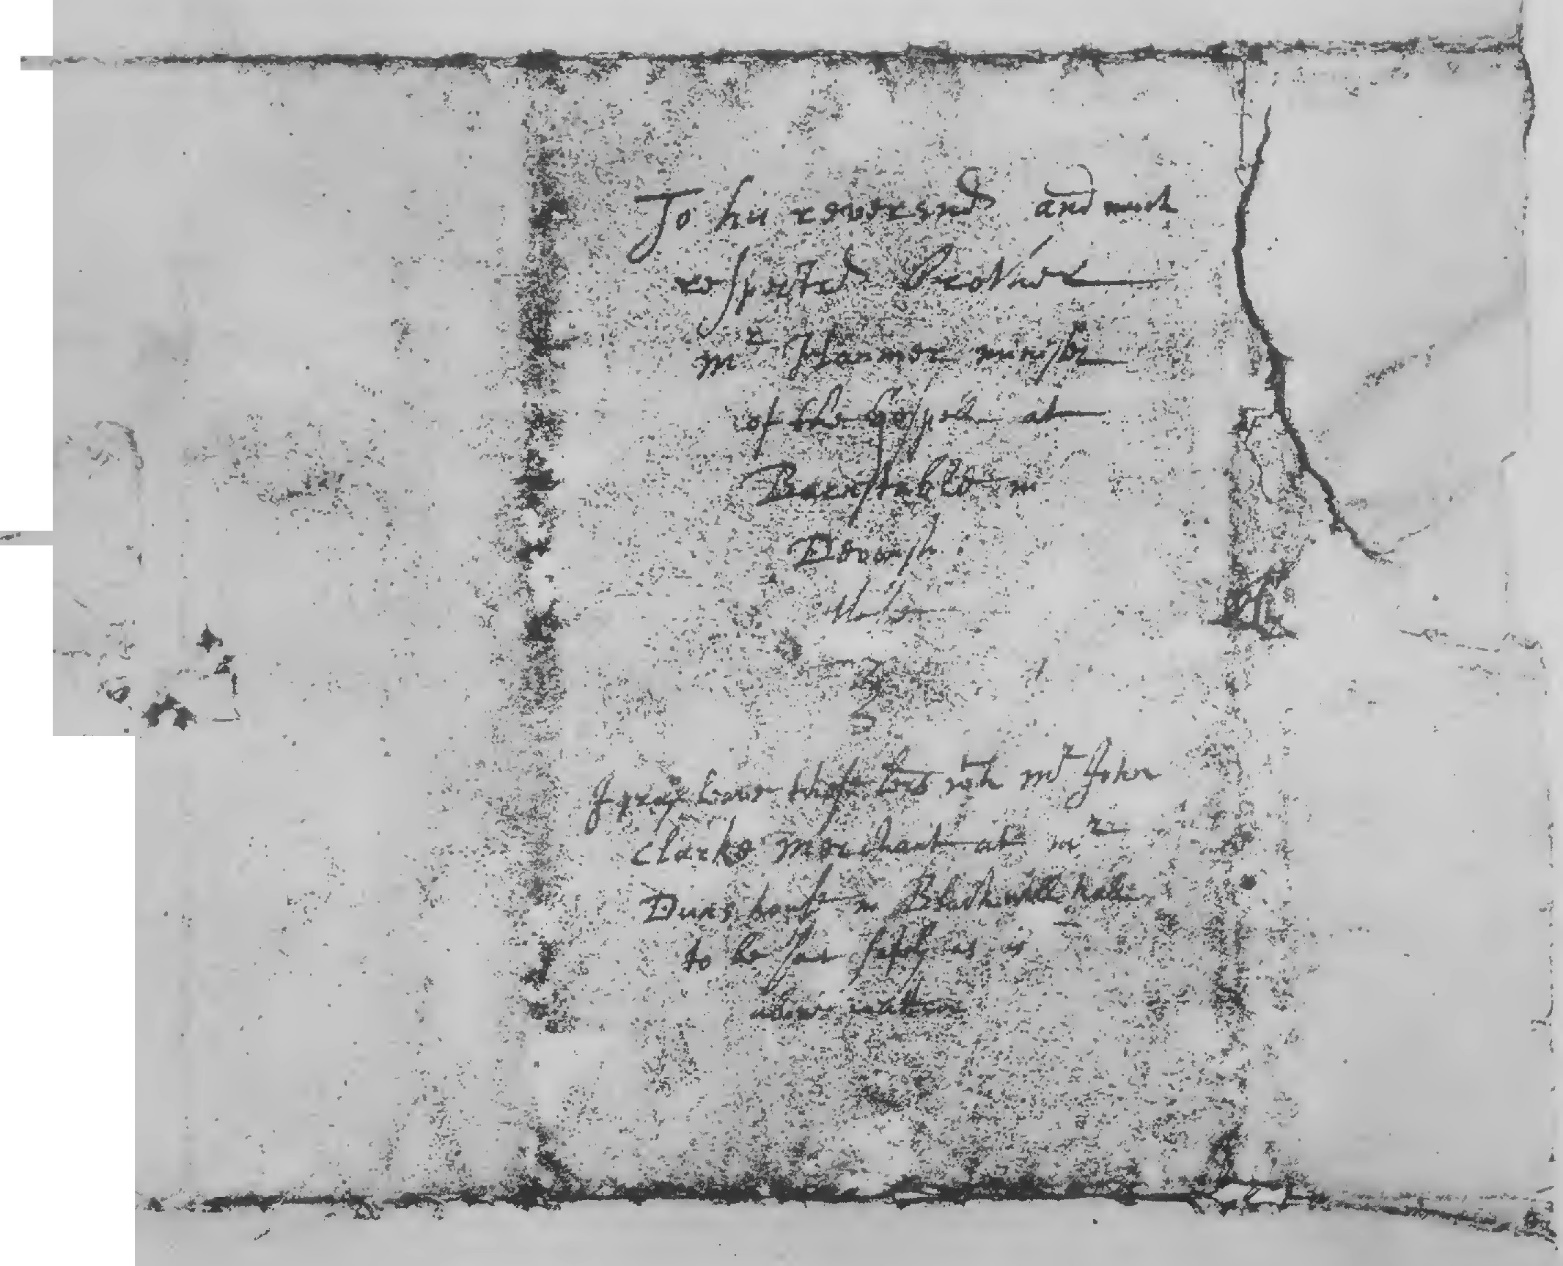 To his reverend and much
respected Brother
mr Hanmer minister
of the Gospell at
Barnstable in
Devonsh
I pray leave these lrs wth mr John
Clarke merchant at mr
Duns house in Blackwell hall
to be sent safely as is
above written